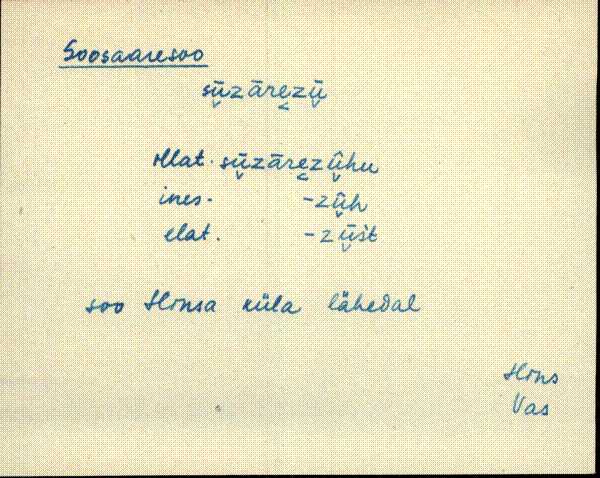 Soosaaresoo
sū̬zāre̬zū̬
illat. sū̬zāre̬zû̬hu
ines. -zû̬h
elat. -zū̬śt
soo Hinsa küla lähedal
Hins
Vas